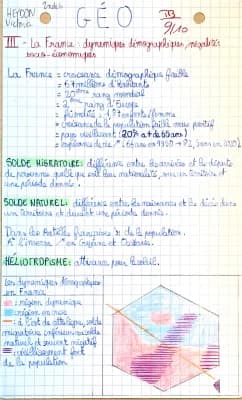 HEYDON
Victoria
2nde6
GÉO
9/10
III - La France : dynamiques démographiques, inégalités
socio-économiques
La France = croissance démographique faible
= 67 millions d'habitants
= 20ème rang mondial
= 2ème rang d'Europe
= fécondité : 1,9 enfants/femme
= croissance de la population faible mais positif
= pays vieillissant (20% a + de 65 ans)
= espérance de vie ↗
SOLDE MIGRATOIRE: différence entre les arrivées et les départs
de personnes quelle que soit leur nationalité, sur un territoire et
une période donnée.
SOLDE NATUREL: différence entre les naissances et les décès dans
un territoire et durant une période donnée.
Dans les Antilles françaises ↘ de la population.
A l'inverse ↗ en Guyane et
HÉLIOTROPISME: attirance pour le soleil.
Les dynamiques démographiques
en France
: région dynamique
: région en
: à l'Est de cette ligne, solde
migratoire inférieur au solde
naturel et souvent négatif
: vieillissement fort
de la population